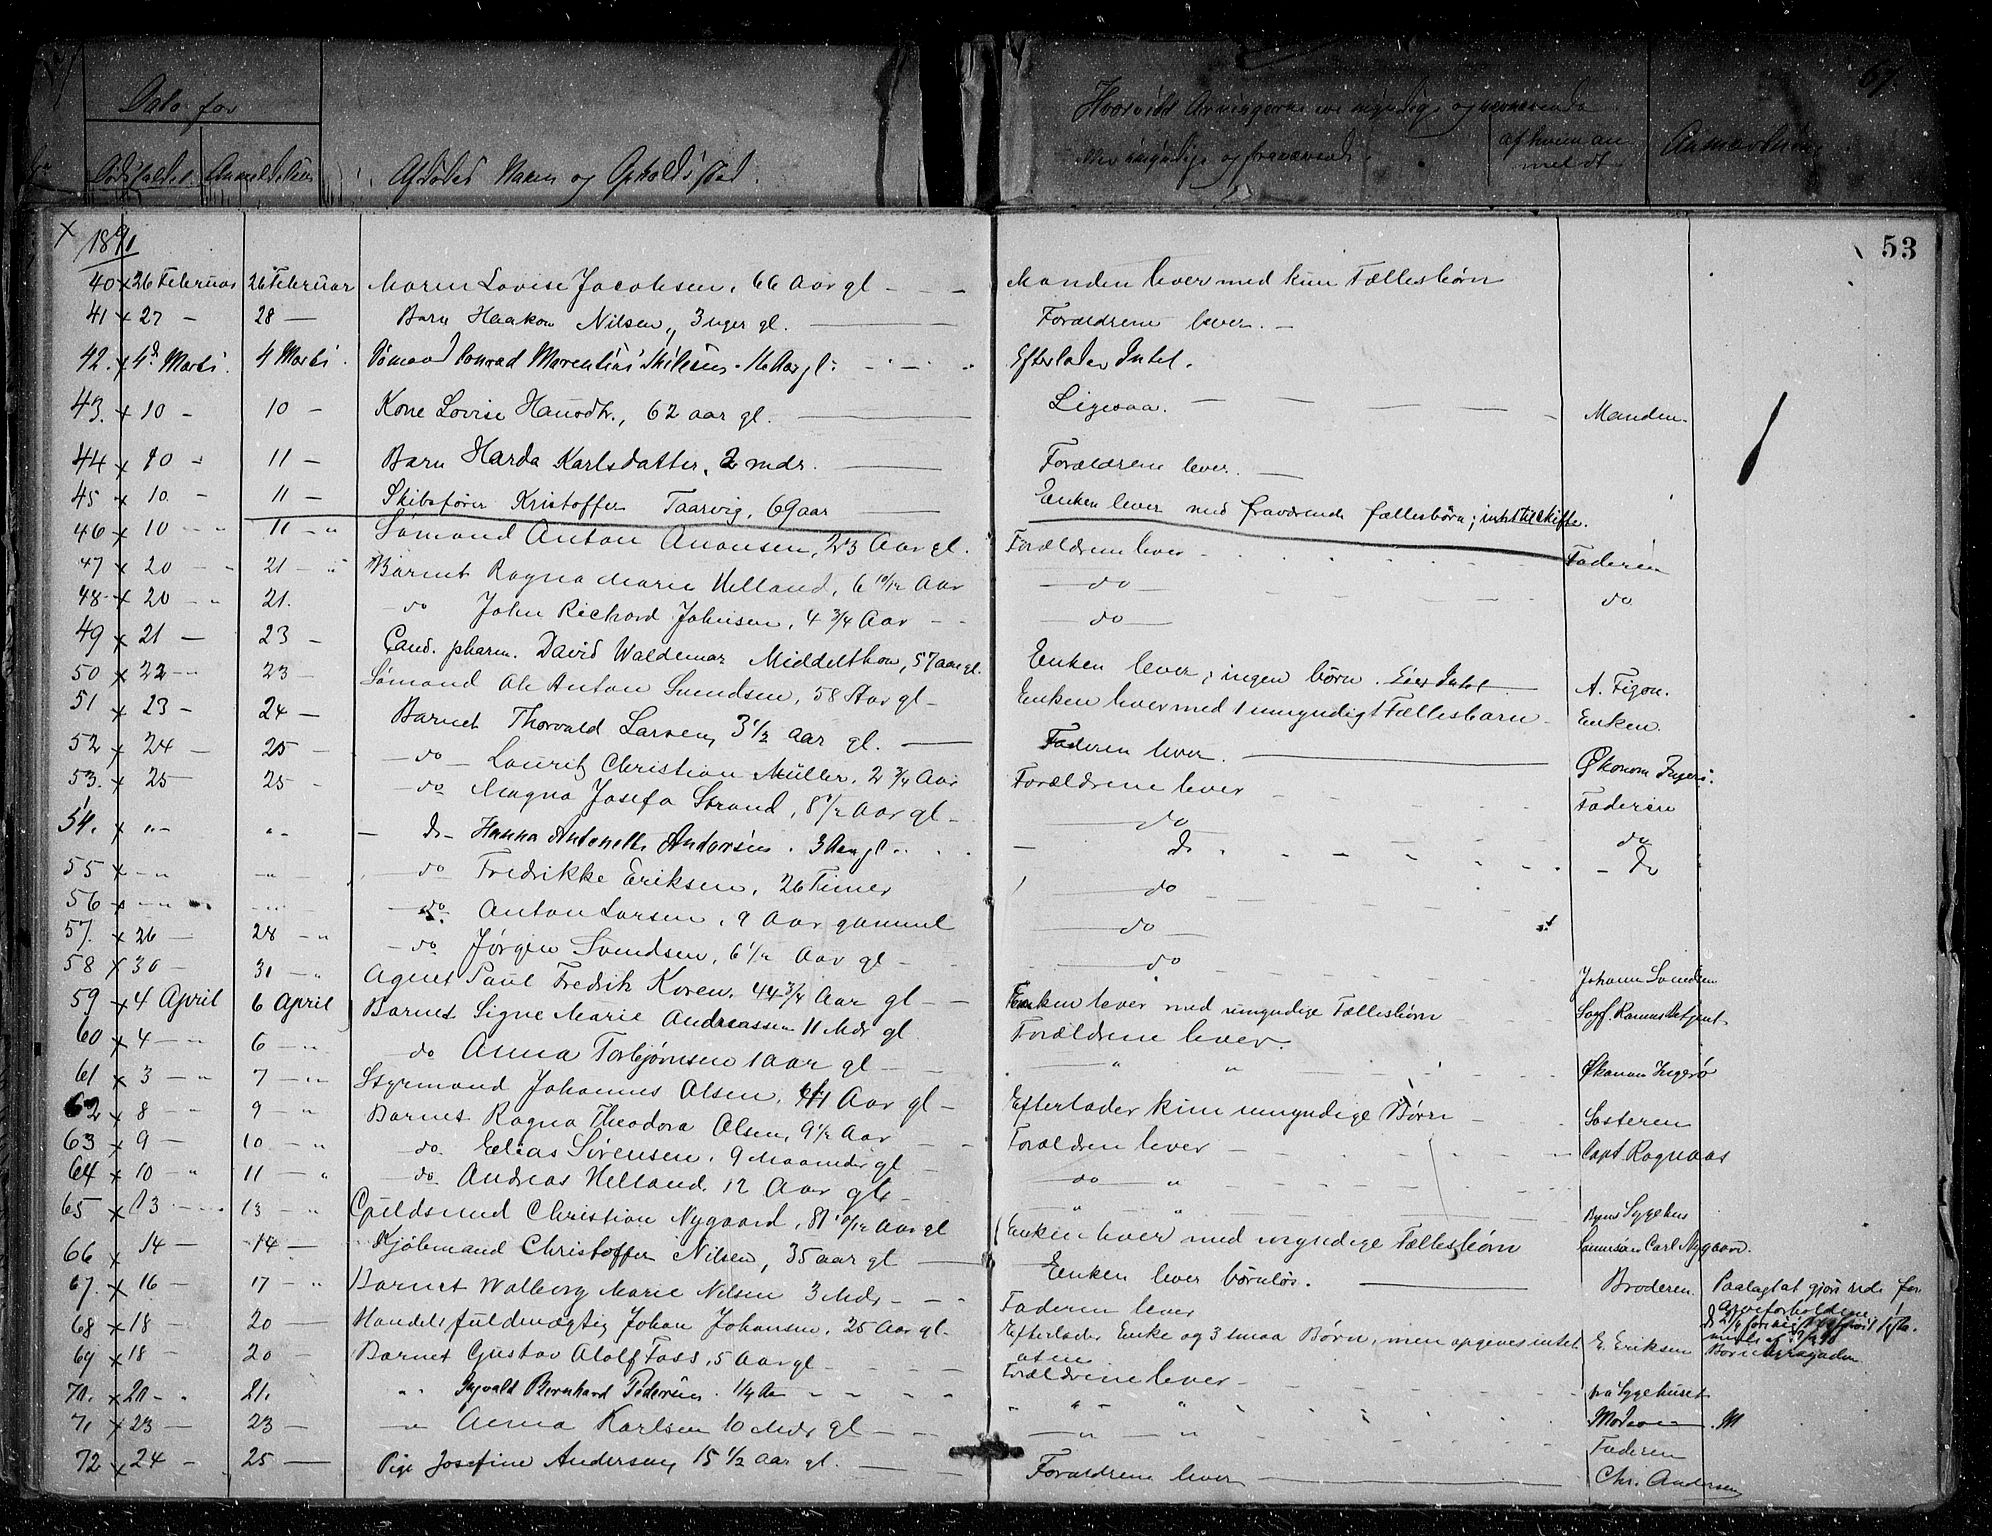 Dato for
Dødsfaldet Anmeldelsen
Afdødes Navn og Opholdssted.
Hvorvidt Arvingerne ere myndige og nærværende
eller umyndige og fraværende.
af hvem anmeldt
Anmærkning
67
53
1891
40 x 26 Februar 26 Februar Maren Lovise Jacobsen, 66 Aar gl — Manden lever med kun Fællesbørn
41 x 27 — 28 — Barn Haakon Nilsen, 3 uger gl. — Forældrene lever. —
42. x 4d Marts. 4 Marts. Sømand Conrad gl. Efterlader Intet.
43. x 10 — 10 — Kone Lovise 62 aar gl. — Ligesaa. — Manden.
44 x 10 — 11 — Barn Harda Karlsdatter, 2 mdr. — Forældrene lever. —
45 x 10 — 11 — Skibsfører Kristoffer Taarvig, 69 aar — Enken lever med fraværende fællesbørn; intet til skifte.
46 x 10 — " 11 — " Sømand Anton Aronsen, 23 Aar gl. Forældrene lever — Faderen
47 x 20 — " 21 — " Barnet Ragna Marie Helland, 6 10/12 Aar — do — do
48 x 20 — " 21. — do John Richard Johnsen, 4 3/4 Aar — — do —
49 x 21 — 23 — Cand. pharm. David Waldemar Middelthon, 57 aar gl. Enken lever; ingen børn. Eier Intet — A. Tizon.
50 x 22 — 23 — Sømand Ole Anton Svendsen, 58 Aar gl — Enken lever med 1 umyndigt Fællesbarn — Enken.
51 x 23 — 24 — Barnet Thorvald Larsen, 3 1/2 aar gl. — Faderen lever. — Økonom Ingerø.
52 x 24 — 25 — — do — Lauritz Christian Müller, 2 3/4 Aar Forældrene lever — Faderen
53. x 25 — 25 — do Magna Josefa Strand, 8 1/2 Aar gl — — do — do
54. x " — " — — do — Hanna Antonette Andersen. 3 Aar gl. — do — do
55 x — " — — " — — do Fredrikke Eriksen, 26 Timer — do
56 x — " — — do Anton Larsen, 9 Aar gammel — do —
57. x 26 — 28 — " — do Jørgen Svendsen, 6 1/2 Aar gl — — do — Johann Svendsen
58 x 30 — 31 — " Agent Paul Fredrik Koren, 44 3/4 Aar gl — Enken lever med umyndige Fællesbørn
59 x 4 April 6 April Barnet Signe Marie Andreassen 11 Mdr gl Forældrene lever.
60 x 4 — " 6 — " do Anna Torbjørnsen 1 aar gl — " " Økonom Ingerø
61 x 3 — " 7 — " Styrmand Johannes Olsen, 41 Aar gl — Efterlader kun umyndige Børn — Søsteren
62 x 8 — " 9 — " Barnet Ragna Theodora Olsen, 9 1/2 Aar — Forældren lever — Capt. Rognaas
63 x 9 — 10 — " — do Elias Sørensen, 9 Maaneder gl — do — "
64 x 10 — " 11 — " — do Andreas Helland, 12 Aar gl — " " Byens Sygehus
65 x 13 — 13 — " Guldsmed Christian Nygaard, 81 10/12 Aar gl Enken lever med myndige Fællesbørn Carl Nygaard.
66 x 14 — 14 — Kjøbmand Christoffer Nilsen, 35 aar gl — Enken lever børnløs. — Broderen. Paalagt at gjøre rede for Arveforholdene
67. x 16 — 17 — " Barnet Walborg Marie Nilsen 3 Mdr — Faderen lever
68 x 18 — 20 — Handelsfuldmægtig Johan Johansen, 25 Aar gl. Efterlader Enke og 3 smaa Børn, men opgives intet at eie E. Eriksen
69 x 18 — 20 — Barnet Gustav Adolf Foss, 5 Aar gl — Forældrene lever — fra Sygehuset
70. x 20 — " 21. " Ingvald Bernhard Pedersen. 1/4 Aar — " " " Moderen M
71 x 23 — 23 — — " Anna Karlsen 10 Mdr gl — — " — " Faderen
72 x 24 — 25 — Pige Josefine Andersen, 15 1/2 aar gl. — Forældrene lever — Chr. Andersen